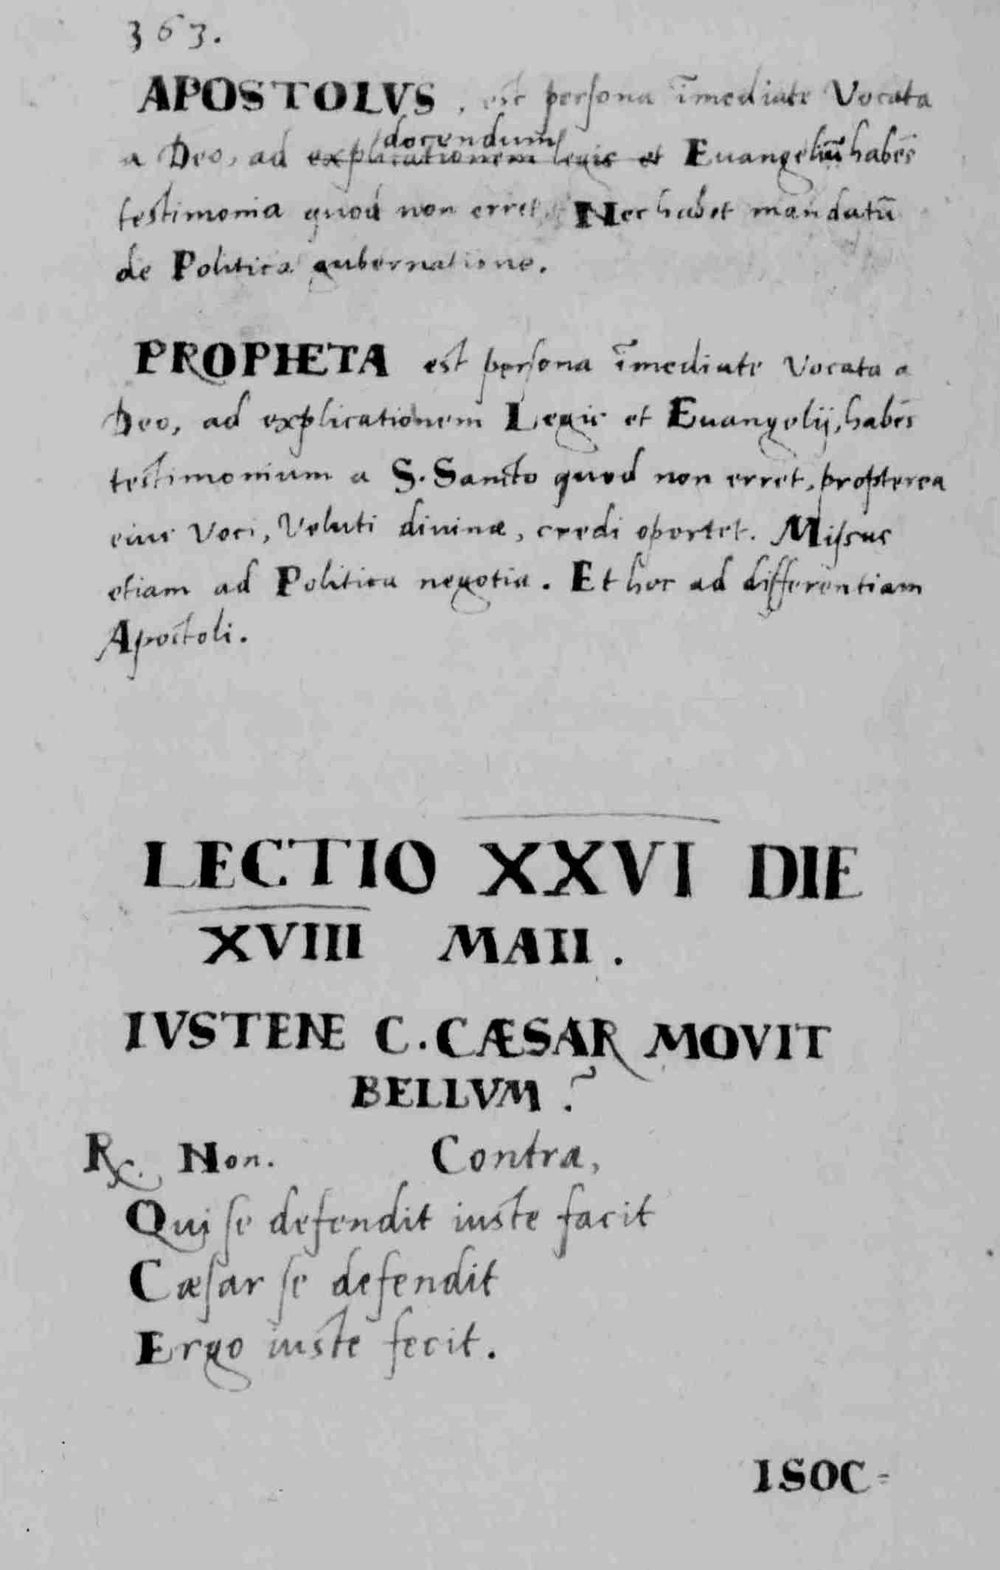 363.
APOSTOLVS, est persona īmediate Vocata
a Deo, ad explicationem legis et docendum Euangeliū habēs
testimonia quod non erret. Nec habet mandatū
de Politica gubernatione.
PROPHETA est persona īmediate Vocata a
Deo, ad explicationem Legis et Euangelij, habēs
testimonium a S. Sancto quod non erret, propterea
eius Voci, Veluti divinæ, credi oportet. Missus
etiam ad Politica negotia. Et hoc ad differentiam
Apostoli.
LECTIO XXVI DIE
XVIII MAII.
IVSTENE C. CÆSAR MOVIT
BELLVM?
R. Non. Contra,
Qui se defendit iuste facit
Cæsar se defendit
Ergo iuste fecit.
ISOC=